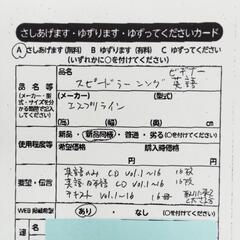 さしあげます・ゆずります・ゆずってくださいカード
Ⓐ さしあげます(無料) B ゆずります(有料) C ゆずってください
(いずれかに○を付けてください)
品名等
(メーカー・型式・サイズを分かる範囲で
品名
ビギナー
スピードラーニング 英語
(メーカー) (型式)
エスプリライン
使用程度等
新品・新品同様・普通・劣る(○を付けてください)
希望価格 購入時価格
要望・伝言
英語のみ CD Vol.1〜16 16枚
英語 日本語 CD Vol.1〜16 16枚
テキスト Vol.1〜16 16冊
WEB掲載希望
あり・なし(○を付けてください)